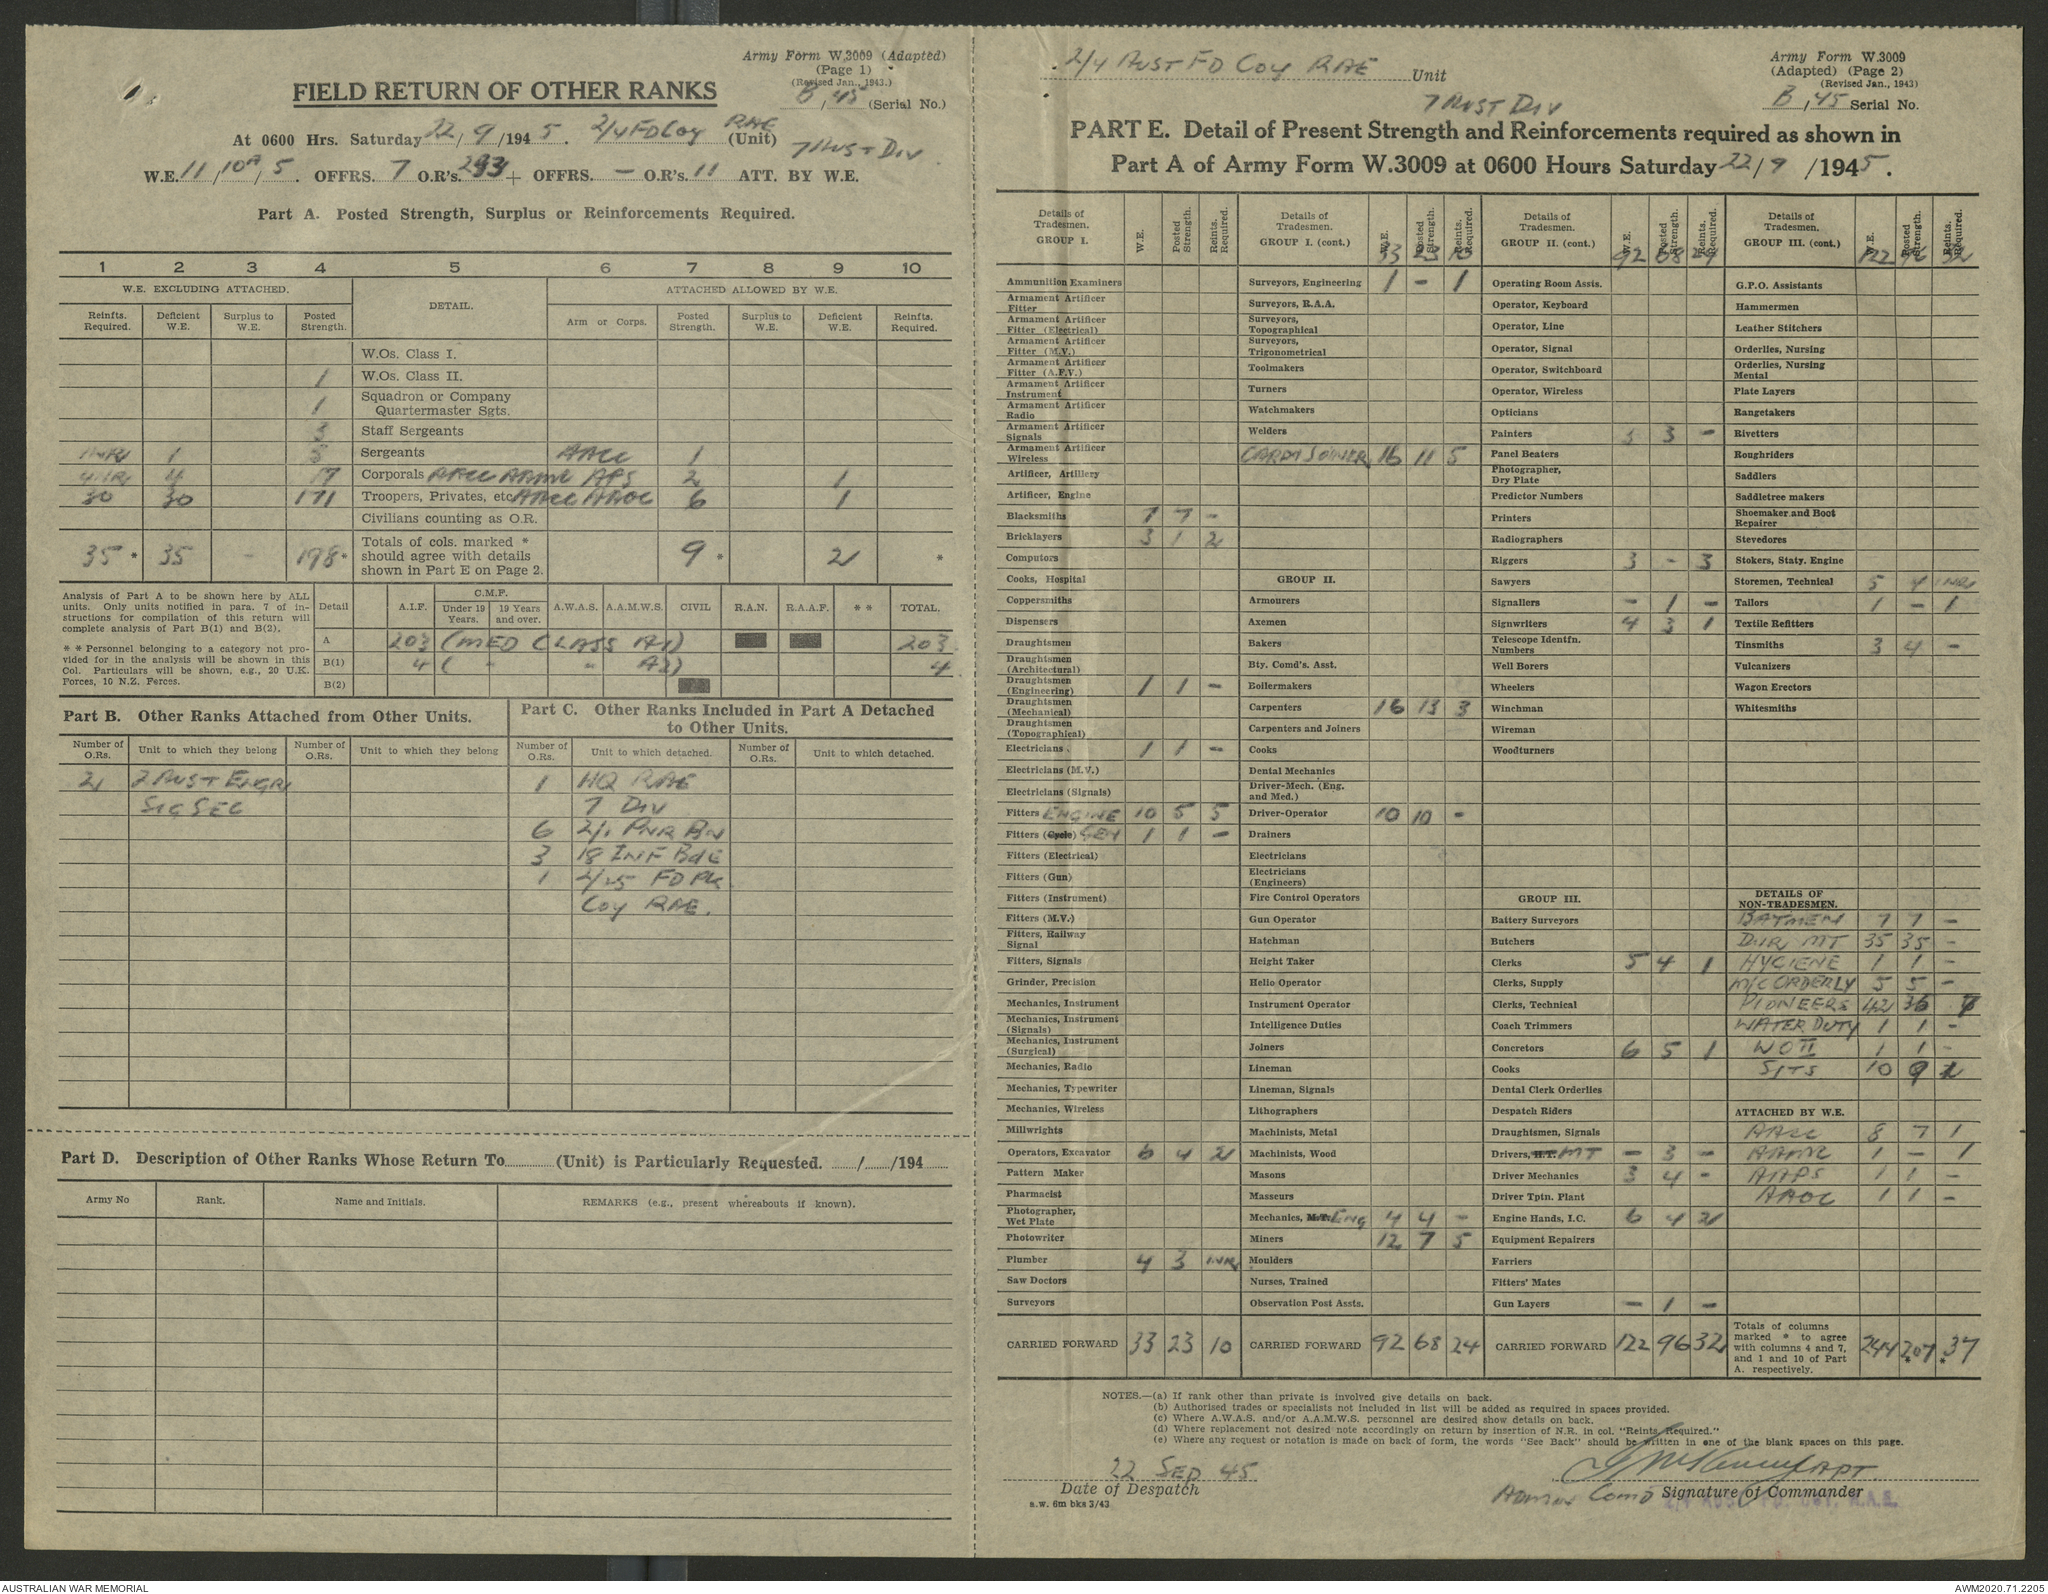 Army Form W.3009 (Adapted)
(Page 1)
(Revised Jan., 1943.)
FIELD RETURN OF OTHER RANKS
B/45 (Serial No.)
At 0600 Hrs. Saturday 22/9/1945. 2/4 FD Coy RAE (Unit)
7 AUST DIV
W.E. 11/10A/5. OFFRS. 7 O.R's. 233 + OFFRS. — O.R's. 11 ATT. BY W.E.
Part A. Posted Strength, Surplus or Reinforcements Required.
1 2 3 4 5 6 7 8 9 10
W.E. EXCLUDING ATTACHED. DETAIL. ATTACHED ALLOWED BY W.E.
Reinfts. Required. Deficient W.E. Surplus to W.E. Posted Strength. Arm or Corps. Posted Strength. Surplus to W.E. Deficient W.E. Reinfts. Required.
W.Os. Class I.
1 W.Os. Class II.
1 Squadron or Company Quartermaster Sgts.
3 Staff Sergeants
1NR 1 5 Sergeants AACC 1
4NR 4 17 Corporals AACC AAMC APS 2 1
30 30 171 Troopers, Privates, etc AACC AAOC 6 1
Civilians counting as O.R.
35 * 35 - 198 * Totals of cols. marked * should agree with details shown in Part E on Page 2. 9 * 2 *
Analysis of Part A to be shown here by ALL units. Only units notified in para. 7 of instructions for compilation of this return will complete analysis of Part B(1) and B(2).
* * Personnel belonging to a category not provided for in the analysis will be shown in this Col. Particulars will be shown, e.g., 20 U.K. Forces, 10 N.Z. Forces.
Detail A.I.F. C.M.F. Under 19 Years. 19 Years and over. A.W.A.S. A.A.M.W.S. CIVIL R.A.N. R.A.A.F. * * TOTAL.
A 203 (MED CLASS A1) 203
B(1) 4 ( " " A2) 4
B(2)
Part B. Other Ranks Attached from Other Units.
Part C. Other Ranks Included in Part A Detached to Other Units.
Number of O.Rs. Unit to which they belong Number of O.Rs. Unit to which they belong Number of O.Rs. Unit to which detached. Number of O.Rs. Unit to which detached.
2 7 AUST ENGR 1 HQ RAE
SIG SEC 7 DIV
6 2/1 PNR BN
3 18 INF BDE
1 2/25 FD PK
COY RAE.
Part D. Description of Other Ranks Whose Return To............(Unit) is Particularly Requested. ....../....../194......
Army No Rank. Name and Initials. REMARKS (e.g., present whereabouts if known).
2/4 AUST FD COY RAE Unit
7 AUST DIV
Army Form W.3009
(Adapted) (Page 2)
(Revised Jan., 1943)
B/45 Serial No.
PART E. Detail of Present Strength and Reinforcements required as shown in
Part A of Army Form W.3009 at 0600 Hours Saturday 22/9/1945.
Details of Tradesmen. GROUP I. W.E. Posted Strength. Reints. Required.
Ammunition Examiners
Armament Artificer Fitter
Armament Artificer Fitter (Electrical)
Armament Artificer Fitter (M.V.)
Armament Artificer Fitter (A.F.V.)
Armament Artificer Instrument
Armament Artificer Radio
Armament Artificer Signals
Armament Artificer Wireless
Artificer, Artillery
Artificer, Engine
Blacksmiths 7 7 -
Bricklayers 3 1 2
Computors
Cooks, Hospital
Coppersmiths
Dispensers
Draughtsmen
Draughtsmen (Architectural)
Draughtsmen (Engineering) 1 1 -
Draughtsmen (Mechanical)
Draughtsmen (Topographical)
Electricians 1 1 -
Electricians (M.V.)
Electricians (Signals)
Fitters ENGINE 10 5 5
Fitters (Cycle) GEN 1 1 -
Fitters (Electrical)
Fitters (Gun)
Fitters (Instrument)
Fitters (M.V.)
Fitters, Railway Signal
Fitters, Signals
Grinder, Precision
Mechanics, Instrument
Mechanics, Instrument (Signals)
Mechanics, Instrument (Surgical)
Mechanics, Radio
Mechanics, Typewriter
Mechanics, Wireless
Millwrights
Operators, Excavator 6 4 2
Pattern Maker
Pharmacist
Photographer, Wet Plate
Photowriter
Plumber 4 3 1NR
Saw Doctors
Surveyors
CARRIED FORWARD 33 23 10
Details of Tradesmen. GROUP I. (cont.) W.E. Posted Strength. Reints. Required.
33 23 10
Surveyors, Engineering 1 - 1
Surveyors, R.A.A.
Surveyors, Topographical
Surveyors, Trigonometrical
Toolmakers
Turners
Watchmakers
Welders
CARP & JOINER 16 11 5
GROUP II.
Armourers
Axemen
Bakers
Bty. Comd's. Asst.
Boilermakers
Carpenters 16 13 3
Carpenters and Joiners
Cooks
Dental Mechanics
Driver-Mech. (Eng. and Med.)
Driver-Operator 10 10 -
Drainers
Electricians
Electricians (Engineers)
Fire Control Operators
Gun Operator
Hatchman
Height Taker
Hello Operator
Instrument Operator
Intelligence Duties
Joiners
Lineman
Lineman, Signals
Lithographers
Machinists, Metal
Machinists, Wood
Masons
Masseurs
Mechanics, M.T. ENG 4 4 -
Miners 12 7 5
Moulders
Nurses, Trained
Observation Post Assts.
CARRIED FORWARD 92 68 24
Details of Tradesmen. GROUP II. (cont.) W.E. Posted Strength. Reints. Required.
92 68 24
Operating Room Assis.
Operator, Keyboard
Operator, Line
Operator, Signal
Operator, Switchboard
Operator, Wireless
Opticians
Painters 3 3 -
Panel Beaters
Photographer, Dry Plate
Predictor Numbers
Printers
Radiographers
Riggers 3 - 3
Sawyers
Signallers - 1 -
Signwriters 4 3 1
Telescope Identfn. Numbers
Well Borers
Wheelers
Winchman
Wireman
Woodturners
GROUP III.
Battery Surveyors
Butchers
Clerks 5 4 1
Clerks, Supply
Clerks, Technical
Coach Trimmers
Concretors 6 5 1
Cooks
Dental Clerk Orderlies
Despatch Riders
Draughtsmen, Signals
Drivers, H.T. MT - 3 -
Driver Mechanics 3 4 -
Driver Tptn. Plant
Engine Hands, I.C. 6 4 2
Equipment Repairers
Farriers
Fitters' Mates
Gun Layers - 1 -
CARRIED FORWARD 122 96 32
Details of Tradesmen. GROUP III. (cont.) W.E. Posted Strength. Reints. Required.
122 96 32
G.P.O. Assistants
Hammermen
Leather Stitchers
Orderlies, Nursing
Orderlies, Nursing Mental
Plate Layers
Rangetakers
Rivetters
Roughriders
Saddlers
Saddletree makers
Shoemaker and Boot Repairer
Stevedores
Stokers, Staty. Engine
Storemen, Technical 5 4 1NR
Tailors 1 - 1
Textile Refitters
Tinsmiths 3 4 -
Vulcanizers
Wagon Erectors
Whitesmiths
DETAILS OF NON-TRADESMEN.
BATMEN 7 7 -
DVR MT 35 35 -
HYGIENE 1 1 -
M/C ORDERLY 5 5 -
PIONEERS 42 36
WATER DUTY 1 1 -
WO II 1 1 -
SJTS 10 9
ATTACHED BY W.E.
AACC 8 7 1
AAMC 1 - 1
AAPS 1 1 -
AAOC 1 1 -
Totals of columns marked * to agree with columns 4 and 7, and 1 and 10 of Part A. respectively. 244 207 * 37 *
NOTES.—(a) If rank other than private is involved give details on back.
(b) Authorised trades or specialists not included in list will be added as required in spaces provided.
(c) Where A.W.A.S. and/or A.A.M.W.S. personnel are desired show details on back.
(d) Where replacement not desired note accordingly on return by insertion of N.R. in col. "Reints. Required."
(e) Where any request or notation is made on back of form, the words "See Back" should be written in one of the blank spaces on this page.
22 SEP 45
Date of Despatch
CAPT
Comd Signature of Commander
a.w. 6m bks 3/43
AUSTRALIAN WAR MEMORIAL
AWM2020.71.2205